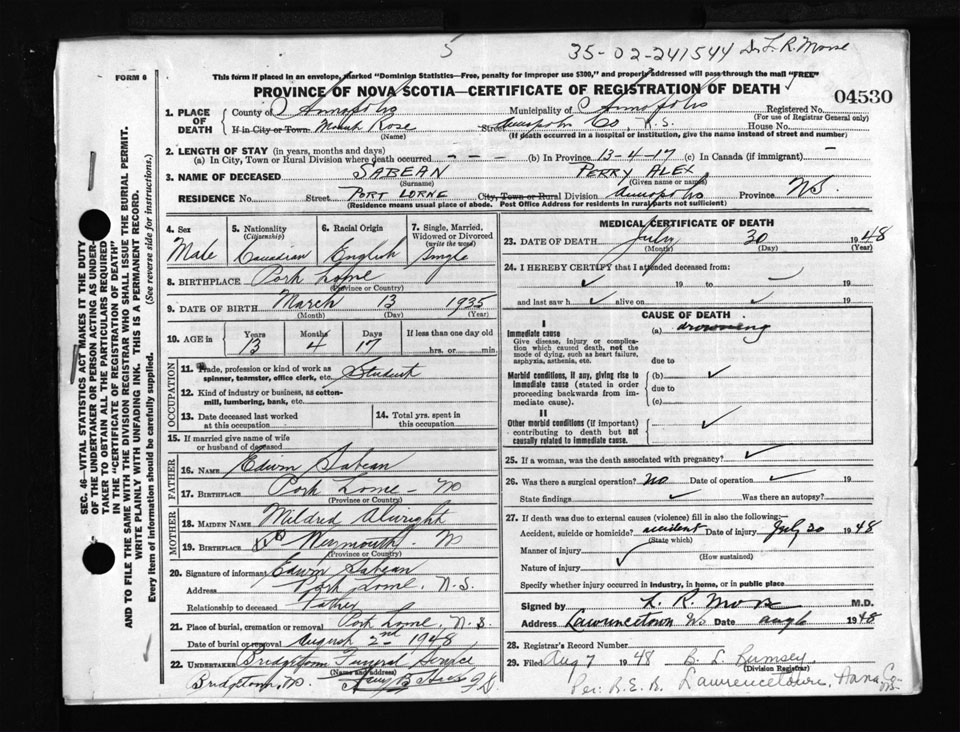 5
35-02-241544 Dr L. R. Morse
FORM 6
This form if placed in an envelope, marked "Dominion Statistics—Free, penalty for improper use $300," and properly addressed will pass through the mail "FREE"
PROVINCE OF NOVA SCOTIA—CERTIFICATE OF REGISTRATION OF DEATH
04530
1. PLACE OF DEATH
County of Annapolis Municipality of Annapolis Registered No.
(For use of Registrar General only)
If in City or Town Mount Rose Street Annapolis Co, N.S. House No.
(Name) (If death occurred in a hospital or institution, give the name instead of street and number)
2. LENGTH OF STAY (in years, months and days)
(a) In City, Town or Rural Division where death occurred - - - (b) In Province 13-4-17 (c) In Canada (if immigrant) -
3. NAME OF DECEASED SABEAN PERRY ALEX
(Surname) (Given name or names)
RESIDENCE No. Street PORT LORNE City, Town or Rural Division Annapolis Province NS.
(Residence means usual place of abode. Post Office Address for residents in rural parts not sufficient)
4. Sex Male
5. Nationality (Citizenship) Canadian
6. Racial Origin English
7. Single, Married, Widowed or Divorced (write the word) Single
8. BIRTHPLACE Port Lorne
(Province or Country)
9. DATE OF BIRTH March 13 1935
(Month) (Day) (Year)
10. AGE in Years Months Days If less than one day old
13 4 17 hrs. or min.
OCCUPATION
11. Trade, profession or kind of work as spinner, teamster, office clerk, etc. Student
12. Kind of industry or business, as cotton-mill, lumbering, bank, etc.
13. Date deceased last worked at this occupation
14. Total yrs. spent in this occupation
15. If married give name of wife or husband of deceased
FATHER
16. Name Edwin Sabean
17. BIRTHPLACE Port Lorne - NS
(Province or Country)
MOTHER
18. MAIDEN NAME Mildred
19. BIRTHPLACE Weymouth. NS
(Province or Country)
20. Signature of informant Edwin Sabean
Address Port Lorne, N.S.
Relationship to deceased Father
21. Place of burial, cremation or removal Port Lorne, N.S.
Date of burial or removal August 2nd 1948
22. UNDERTAKER Bridgetown Funeral Service
(Name and address)
Bridgetown, NS.
MEDICAL CERTIFICATE OF DEATH
23. DATE OF DEATH July 30 1948
(Month) (Day) (Year)
24. I HEREBY CERTIFY that I attended deceased from:
✓ 19 to - 19
and last saw h ✓ alive on ✓ 19
CAUSE OF DEATH
I
Immediate cause (a) drowning
Give disease, injury or complication which caused death, not the mode of dying, such as heart failure, asphyxia, asthenia, etc.
due to
Morbid conditions, if any, giving rise to immediate cause (stated in order proceeding backwards from immediate cause).
(b) ✓
due to
(c)
II
Other morbid conditions (if important) contributing to death but not causally related to immediate cause. ✓
25. If a woman, was the death associated with pregnancy? ✓
26. Was there a surgical operation? no Date of operation ✓ 19
State findings ✓ Was there an autopsy?
27. If death was due to external causes (violence) fill in also the following:—
Accident, suicide or homicide? accident Date of injury July 30 1948
(State which)
Manner of injury ✓
(How sustained)
Nature of injury
Specify whether injury occurred in industry, in home, or in public place
Signed by L. R. Morse M.D.
Address Lawrencetown NS Date Aug 6 1948
28. Registrar's Record Number
29. Filed Aug 7 1948 B. L. Rumsey
(Division Registrar)
Per: B.E.R. Lawrencetown, Anna Co. NS.
SEC. 46—VITAL STATISTICS ACT MAKES IT THE DUTY
OF THE UNDERTAKER OR PERSON ACTING AS UNDER-
TAKER TO OBTAIN ALL THE PARTICULARS REQUIRED
IN THE "CERTIFICATE OF REGISTRATION OF DEATH"
AND TO FILE THE SAME WITH THE DIVISION REGISTRAR WHO SHALL ISSUE THE BURIAL PERMIT.
WRITE PLAINLY WITH UNFADING INK. THIS IS A PERMANENT RECORD.
Every item of information should be carefully supplied. (See reverse side for instructions.)